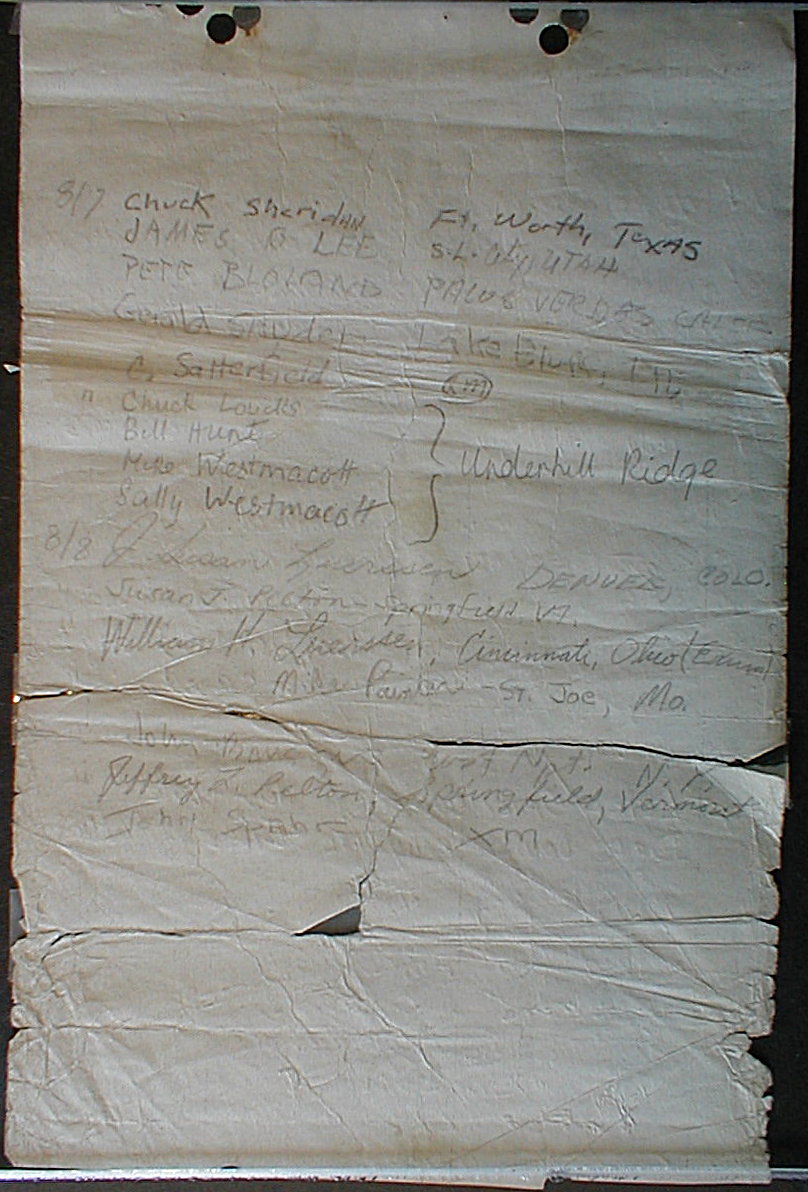 8/7 Chuck Sheridan Ft. Worth, Texas
JAMES B LEE S.L. City, UTAH
PETE BLOLAND PALOS VERDES CALIF
Gerald Snyder Lake Bluff, Ill
C. Satterfield XM
" Chuck Loucks
Bill Hunt
Mike Westmacott Underhill Ridge
Sally Westmacott
8/8 J Susan Luerssen DENVER, COLO.
" Susan J. Pelton - Springfield, VT.
William H. Luerssen, Cincinnati, Ohio
Mike - St. Joe, Mo.
John N.Y.
" Jeffrey L. Pelton, Springfield, Vermont
" John XM